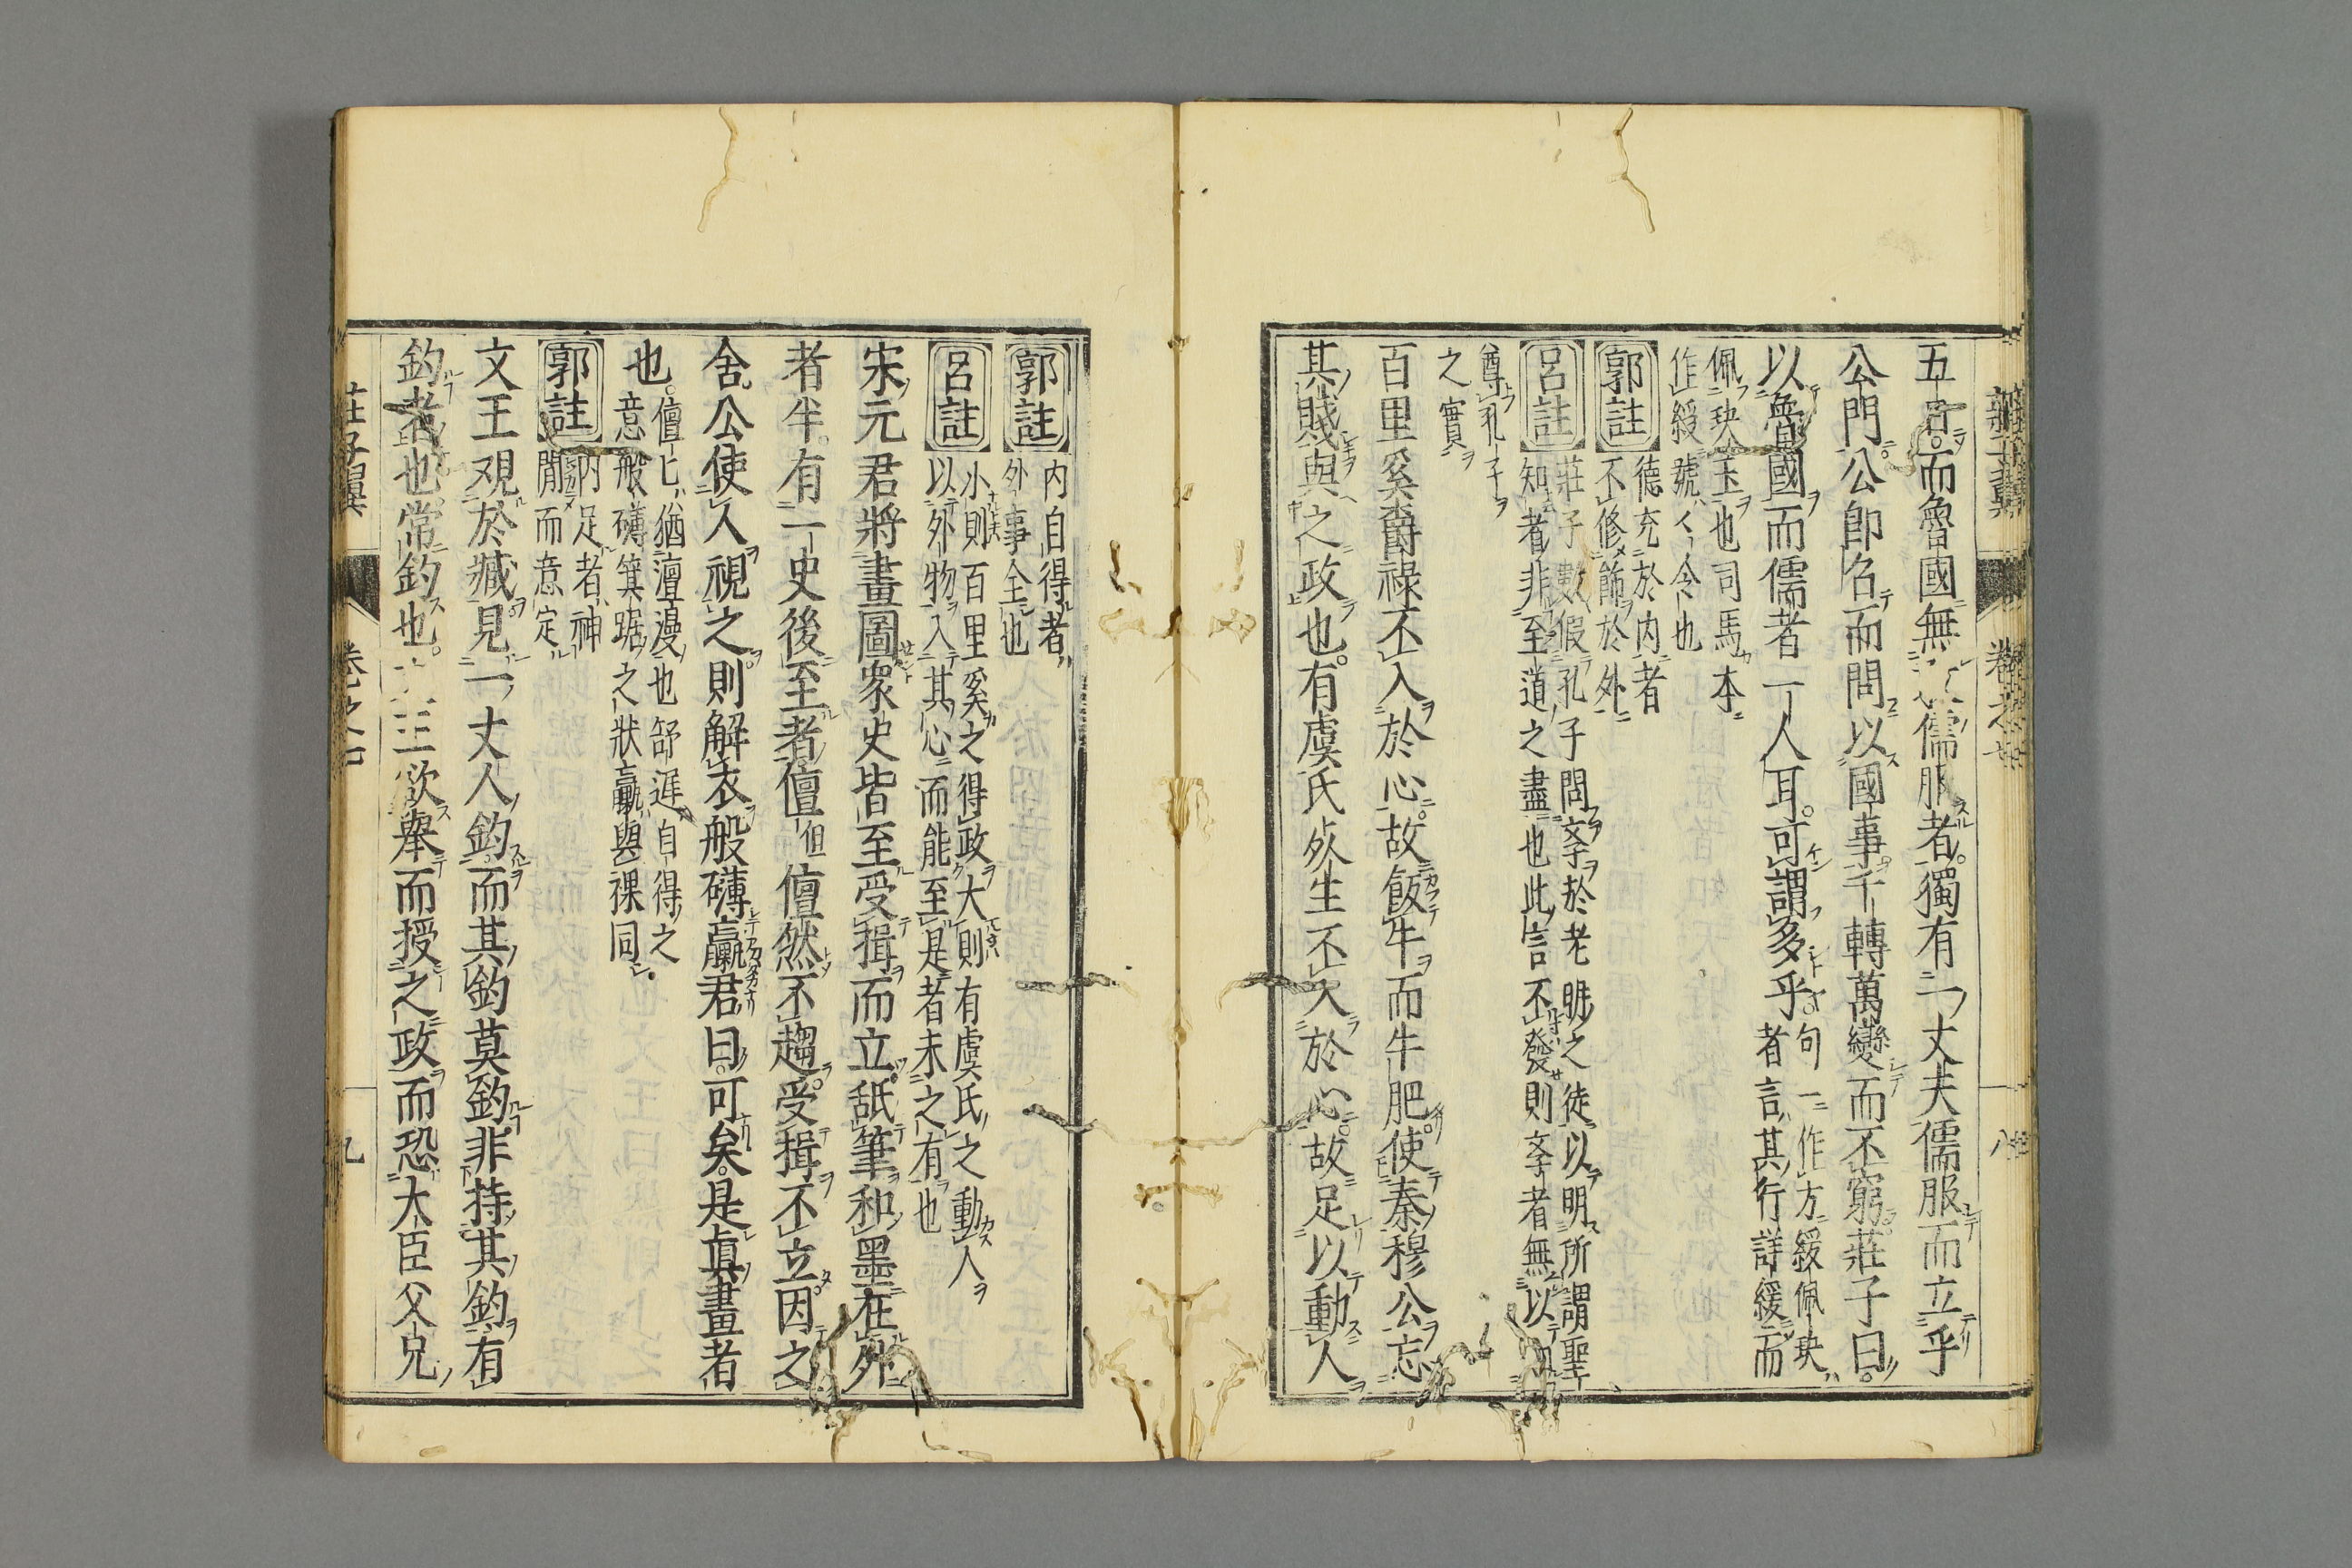 五日而魯國無儒服者獨有一丈夫儒服而立乎
公門公卽召而問以國事千轉萬變而不窮莊子曰
以魯國而儒者一人耳可謂多乎句一作方緩佩玦
者言其行詳緩而
佩玦玉也司馬本
作綬號令也
郭註
德充於内者
不修飾於外
呂註
莊子數假孔子問學於老聃之徒以明所謂聖
知者非至道之盡也此言不發則學者無以知
尊孔子
之實
百里奚爵祿不入於心故飯牛而牛肥使秦穆公忘
其賤與之政也有虞氏死生不入於心故足以動人
郭註
内自得者
外事全也
呂註
小則百里奚之得政大則有虞氏之動人
以外物入其心而能至是者未之有也
宋元君將畫圖衆史皆至受揖而立舐筆和墨在外
者半有一史後至者儃但儃然不趨受揖不立因之
舍公使人視之則解衣般礴臝君曰可矣是眞畫者
也儃匕猶澶漫也舒遲自得之
意般礴箕踞之狀臝與裸同
郭註
内足者神
閒而意定
文王觀於臧見一丈人釣而其釣莫釣非持其釣有
釣者也常釣也王欲舉而授之政而恐大臣父兄
莊子翼
卷之
九